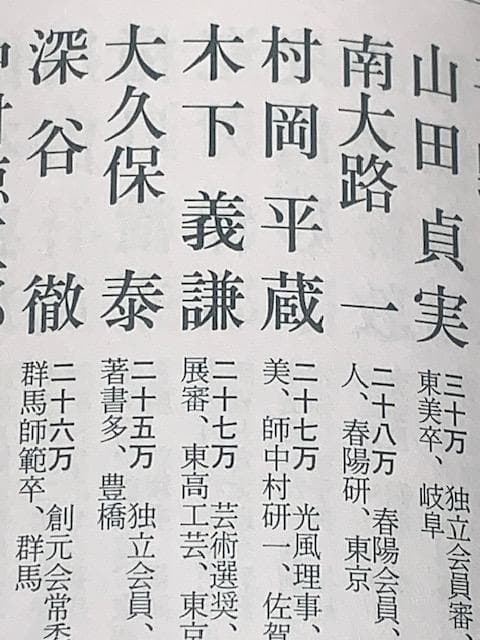 山田貞実
三十万　独立会員審、
東美卒、岐阜
南大路一
二十八万　春陽会員、
人、春陽研、東京
村岡平蔵
二十七万　光風理事、
美、師中村研一、佐賀
木下義謙
二十七万　芸術選奨、
展審、東高工芸、東京
大久保泰
二十五万　独立会員、
著書多、豊橋
深谷徹
二十六万　創元会常委
群馬師範卒、群馬